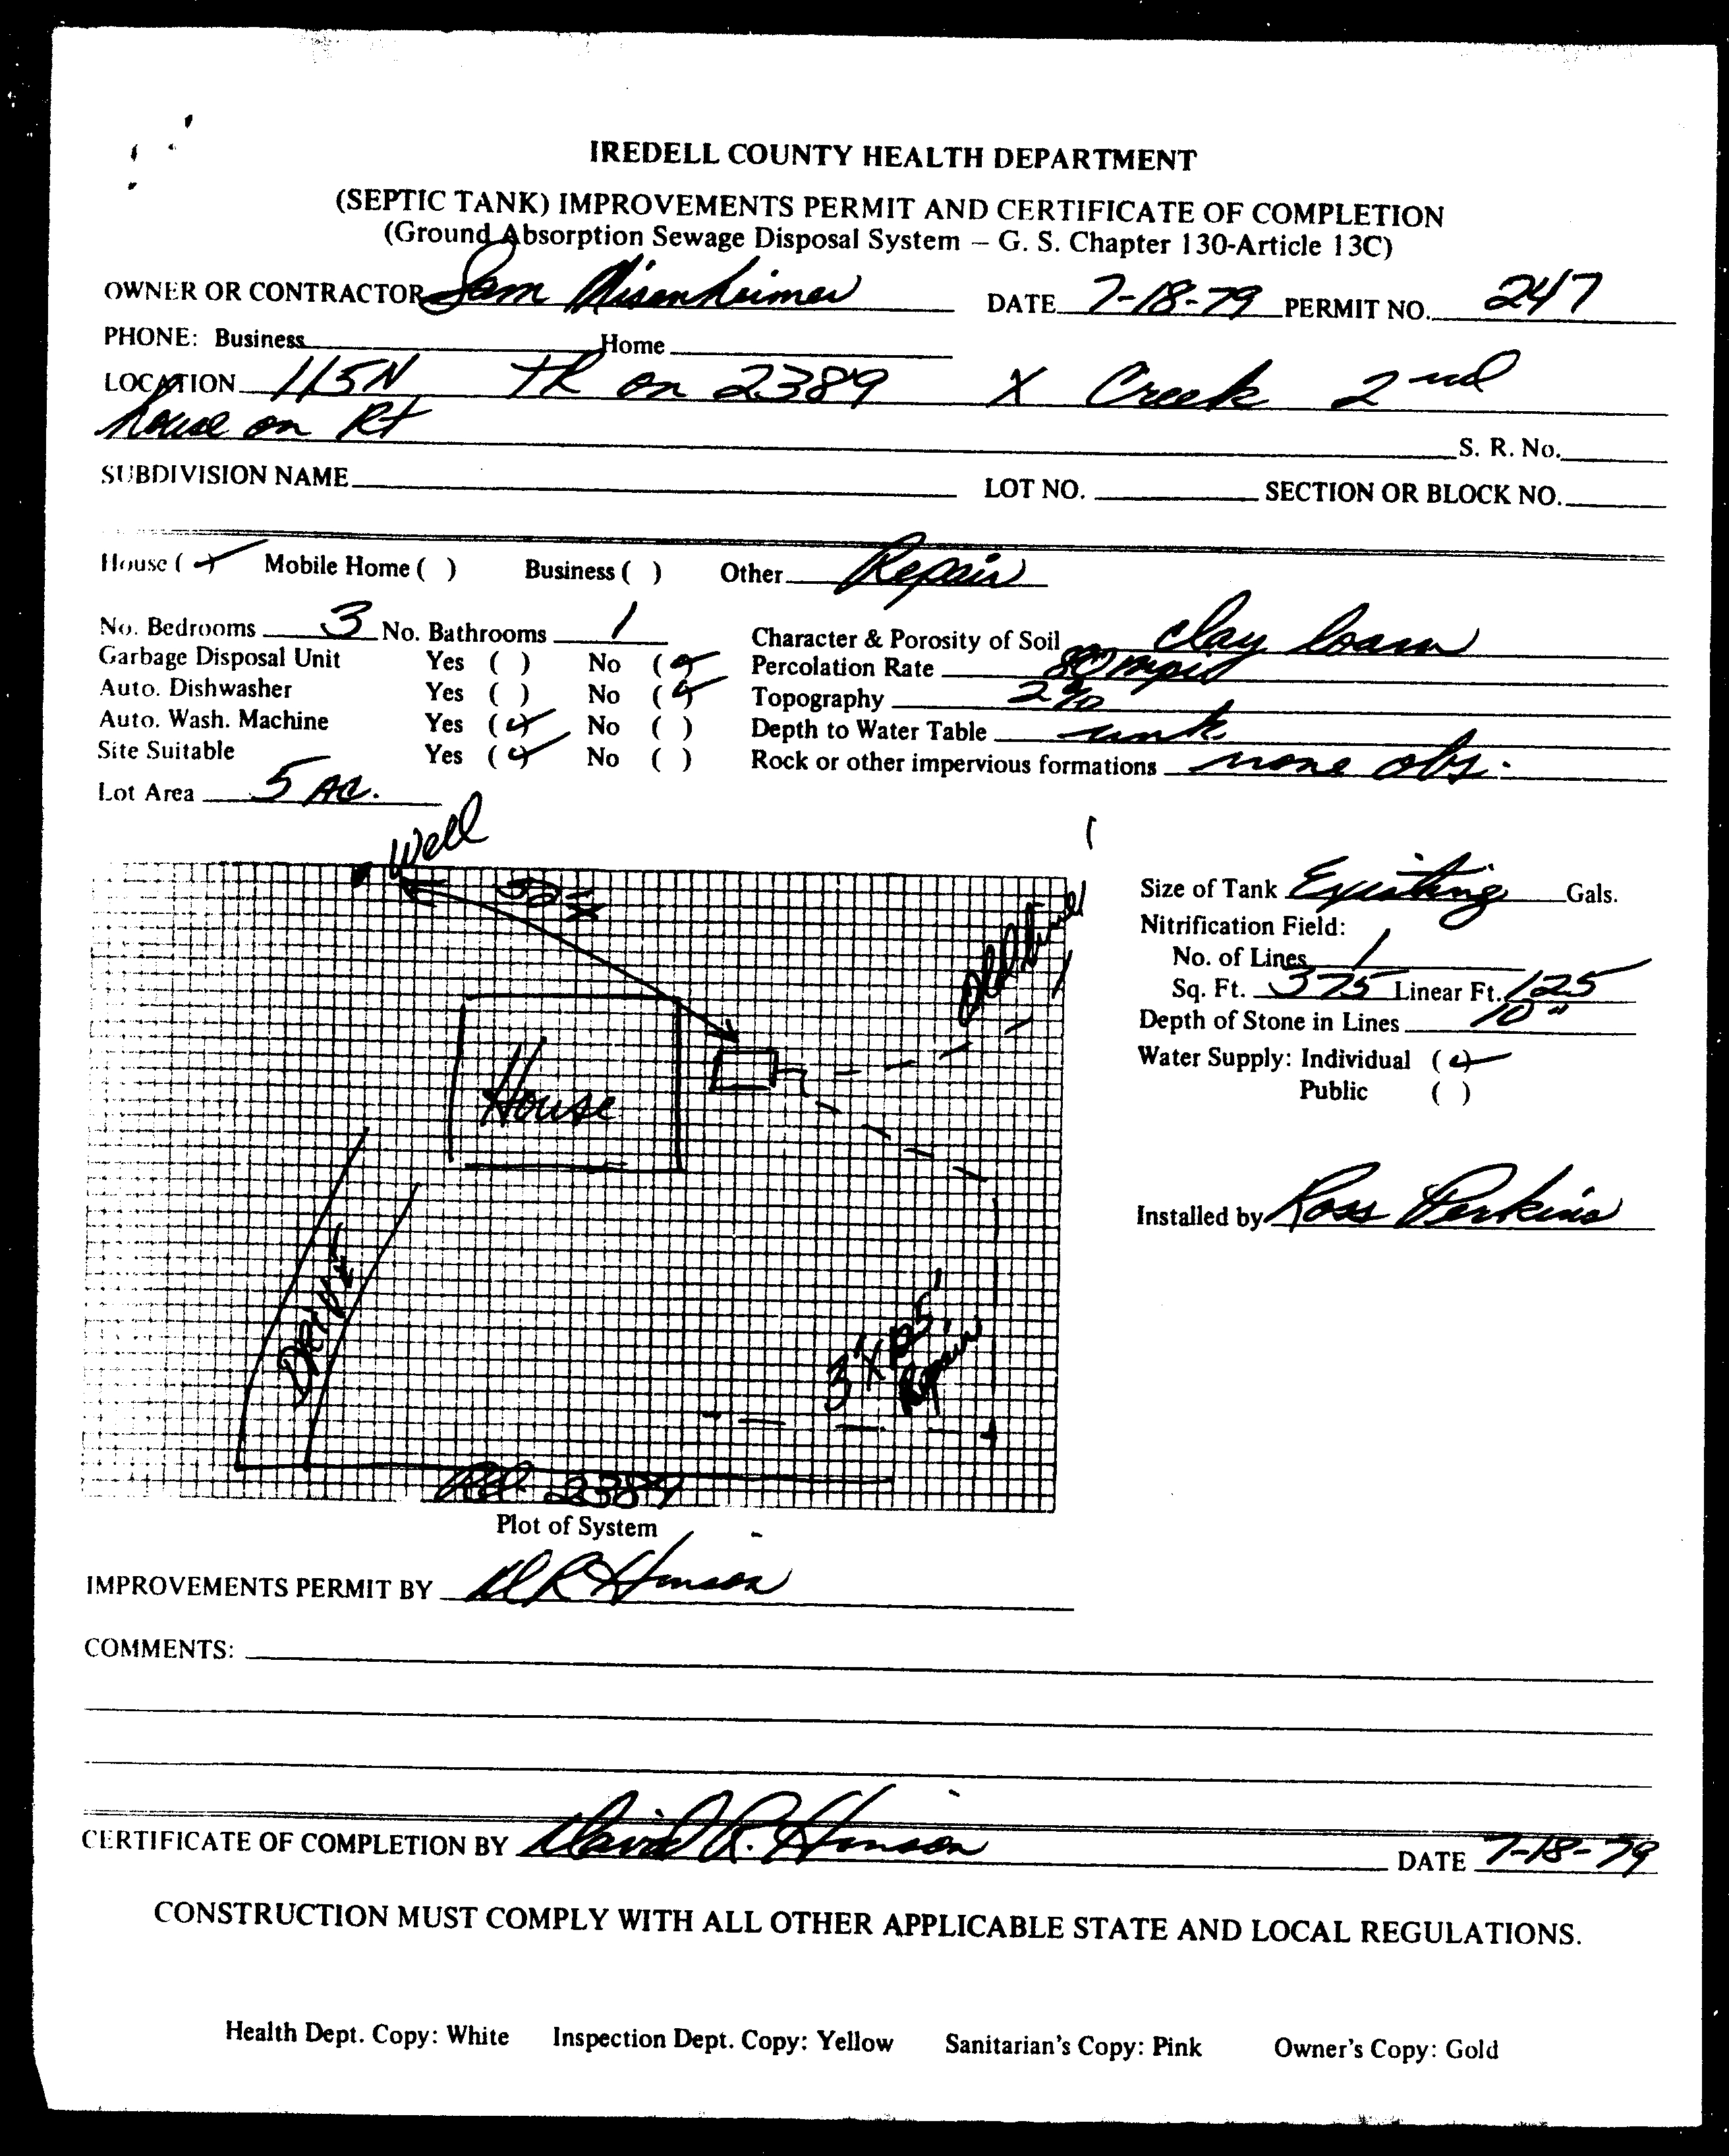 IREDELL COUNTY HEALTH DEPARTMENT
(SEPTIC TANK) IMPROVEMENTS PERMIT AND CERTIFICATE OF COMPLETION
(Ground Absorption Sewage Disposal System – G. S. Chapter 130-Article 13C)
OWNER OR CONTRACTOR Sam Misenheimer DATE 7-18-79 PERMIT NO. 247
PHONE: Business Home
LOCATION 115N TR on 2389 X Creek 2nd
house on Rt
S. R. No.
SUBDIVISION NAME LOT NO. SECTION OR BLOCK NO.
House (✓) Mobile Home ( ) Business ( ) Other Repair
No. Bedrooms 3 No. Bathrooms 1 Character & Porosity of Soil clay loam
Garbage Disposal Unit Yes ( ) No (✓) Percolation Rate 80 mpi
Auto. Dishwasher Yes ( ) No (✓) Topography 2%
Auto. Wash. Machine Yes (✓) No ( ) Depth to Water Table unk
Site Suitable Yes (✓) No ( ) Rock or other impervious formations none obs.
Lot Area 5 AC.
Well
Size of Tank Existing Gals.
Nitrification Field:
No. of Lines 1
Sq. Ft. 375 Linear Ft. 125
Depth of Stone in Lines 10"
Water Supply: Individual (✓)
Public ( )
House
Installed by Ross Perkins
Drive
3' X 125'
Repair
Rd 2389
Plot of System
IMPROVEMENTS PERMIT BY D R Hinson
COMMENTS:
CERTIFICATE OF COMPLETION BY David R. Hinson DATE 7-18-79
CONSTRUCTION MUST COMPLY WITH ALL OTHER APPLICABLE STATE AND LOCAL REGULATIONS.
Health Dept. Copy: White Inspection Dept. Copy: Yellow Sanitarian's Copy: Pink Owner's Copy: Gold